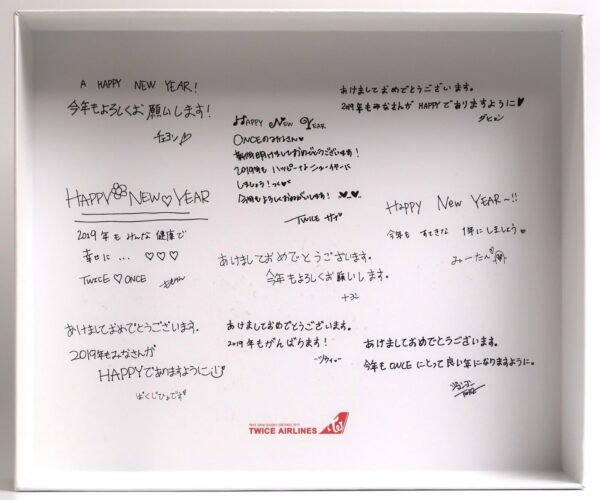 A HAPPY NEW YEAR!
今年もよろしくお願いします!
チェヨン♡
HAPPY NEW YEAR
ONCEのみなさん♡
2019年も ハッピーな ニューイヤーに
しましょう!
今年もよろしくおねがいします!
TWICE サナ
あけましておめでとうございます。
2019年もみなさんが HAPPYでありますように♥
ダヒョン
HAPPY NEW♡YEAR
2019年も みんな 健康で
幸せに... ♡♡♡
TWICE♡ONCE
あけましておめでとうございます。
今年もよろしくお願いします。
ナヨン
Happy New YEAR~!!
今年も すてきな 1年にしましょう
みーたん
あけましておめでとうございます.
2019年もみなさんが
HAPPYでありますように
ぱくじひょです
あけましておめでとうございます!
2019年もがんばります!
-ツウィ-
あけましておめでとうございます。
今年も ONCEにとって良い年になりますように。
ジョンヨン
TWICE AIRLINES